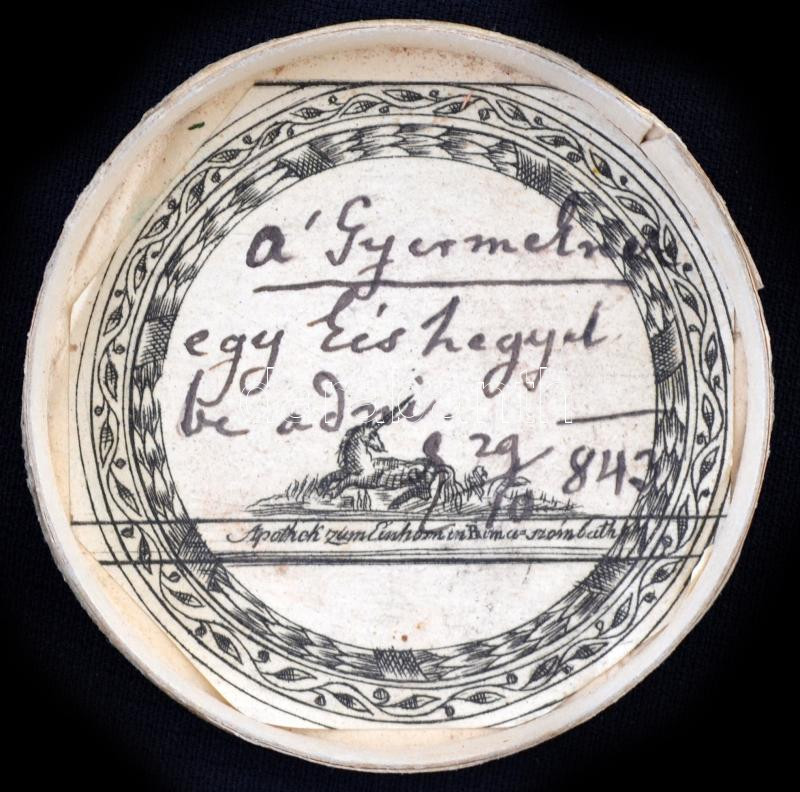 a' Gyermeknek
egy kés hegyel
be adni
29/10 843
Apothek zum Einhorn in Rima-szombath